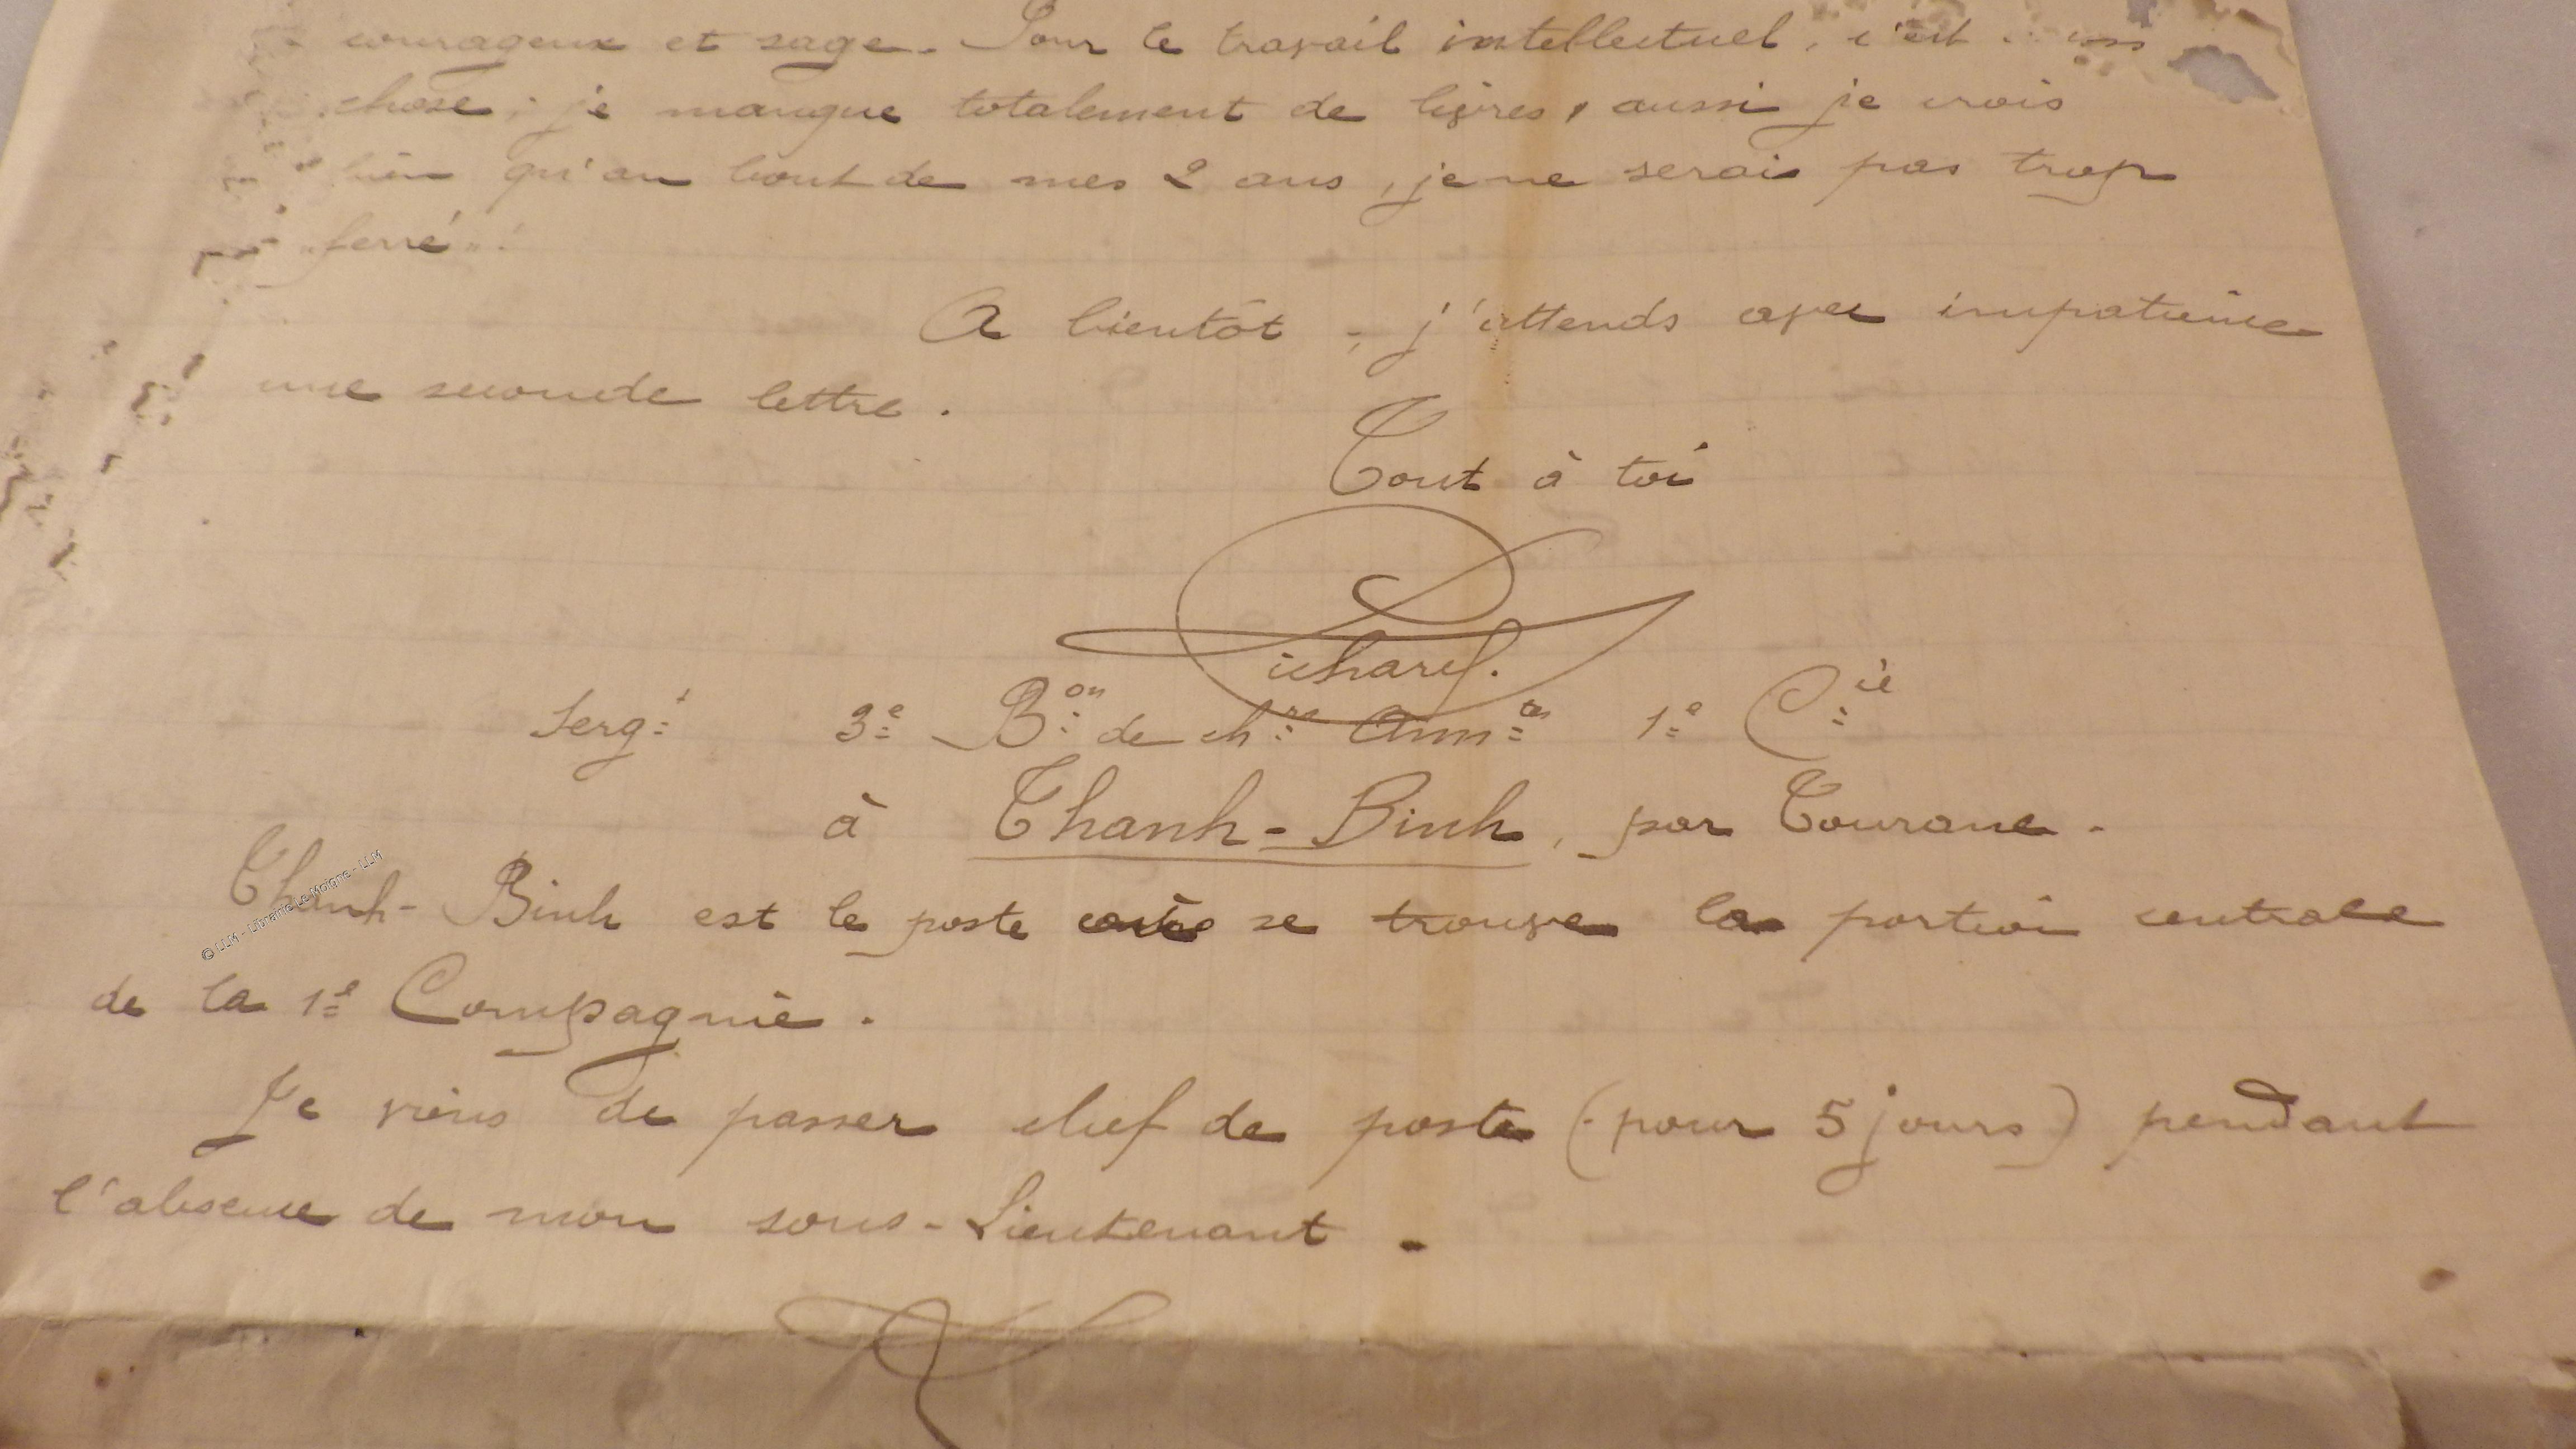 courageux et sage. Pour le travail intellectuel, c'est
chose ; je manque totalement de livres, aussi je crois
bien qu'au bout de mes 2 ans, je ne serais pas trop
"ferré" !
A bientôt ; j'attends avec impatience
une seconde lettre.
Tout à toi
Richard.
Serg:t 3:e B:on de ch:rs Ann:es 1:e C:ie
à Thanh-Binh, par Tourane.
Thanh-Binh est le poste où se trouve la portion centrale
© LLM - Librairie Le Moigne - LLM
de la 1:e Compagnie.
Je viens de passer chef de poste (pour 5 jours) pendant
l'absence de mon sous-Lieutenant.